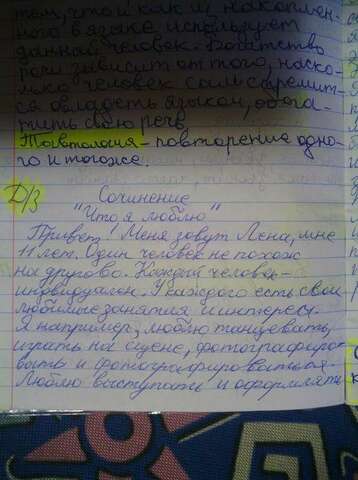 тем, что и как из накоплен-
ного в языке использует
данный человек. Богатство
речи зависит от того, наско-
лько человек сам стремит-
ся овладеть языком, обога-
тить свою речь.
Тавтология - повторение одно-
го и того же.
Д/З Сочинение
"Что я люблю"
Привет! Меня зовут Лена, мне
11 лет. Один человек не похож
на другово. Каждый человек-
индивидуален. У каждого есть свои
любимые занятия и интересы.
Я например, люблю танцевать,
играть на сцене, фотографиро-
вать и фотографироваться.
Люблю выступать и оформлять